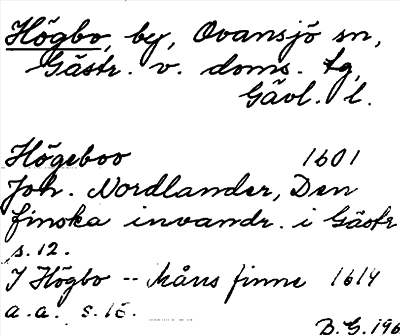 Högbo, by, Ovansjö sn,
Gästr. v. doms. tg,
Gävl. l.
Högeboo 1601
Joh. Nordlander, Den
finska invandr. i Gästr
s. 12.
I Högbo -- Måns finne 1614
a.a. s. 15.
B.G. 196